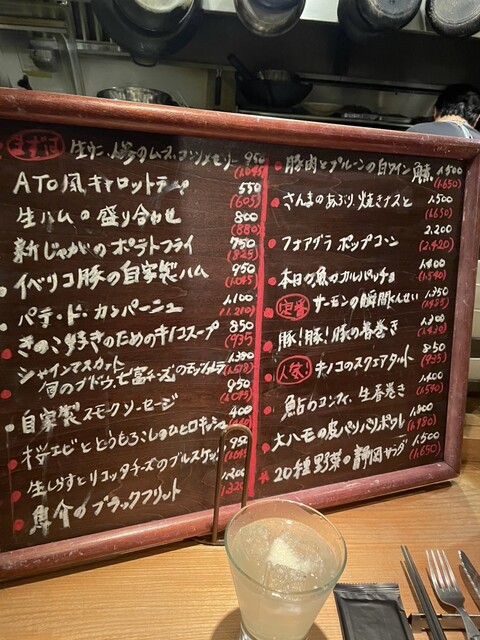 まずは 生ウニ、人参のムース、コンソメゼリー 950
(1,045)
ATO風キャロットラペ 550
(605)
生ハムの盛り合わせ 800
(880)
新じゃがのポテトフライ 750
(825)
イベリコ豚の自家製ハム 950
(1,045)
パテ・ド・カンパーニュ 1,100
(1,210)
きのこ好きのためのキノコスープ 850
(935)
シャインマスカット 1,380
旬のブドウ、七富チーズのモッツァレラ (1,518)
自家製スモークソーセージ 950
(1,045)
桜エビととうもろこしのひと口キッシュ 400
(440)
生しらすとリコッタチーズのブルスケッタ 950
(1,045)
魚介のブラックフリット 1,200
(1,320)
豚肉とプルーンの白ワイン煮 1,500
(1,650)
さんまのあぶり、焼きナスと 1,500
(1,650)
フォアグラ ポップコーン 2,200
(2,420)
本日の魚のカルパッチョ 1,400
(1,540)
定番 サーモンの瞬間くんせい 1,350
(1,485)
豚!豚!豚の春巻き 1,300
(1,430)
人気! キノコのスクエアタルト 850
(935)
鮎のコンフィ、生春巻き 1,400
(1,540)
大ハモの皮パリパリポワレ
20種野菜の静岡サラダ 1,500
(1,650)